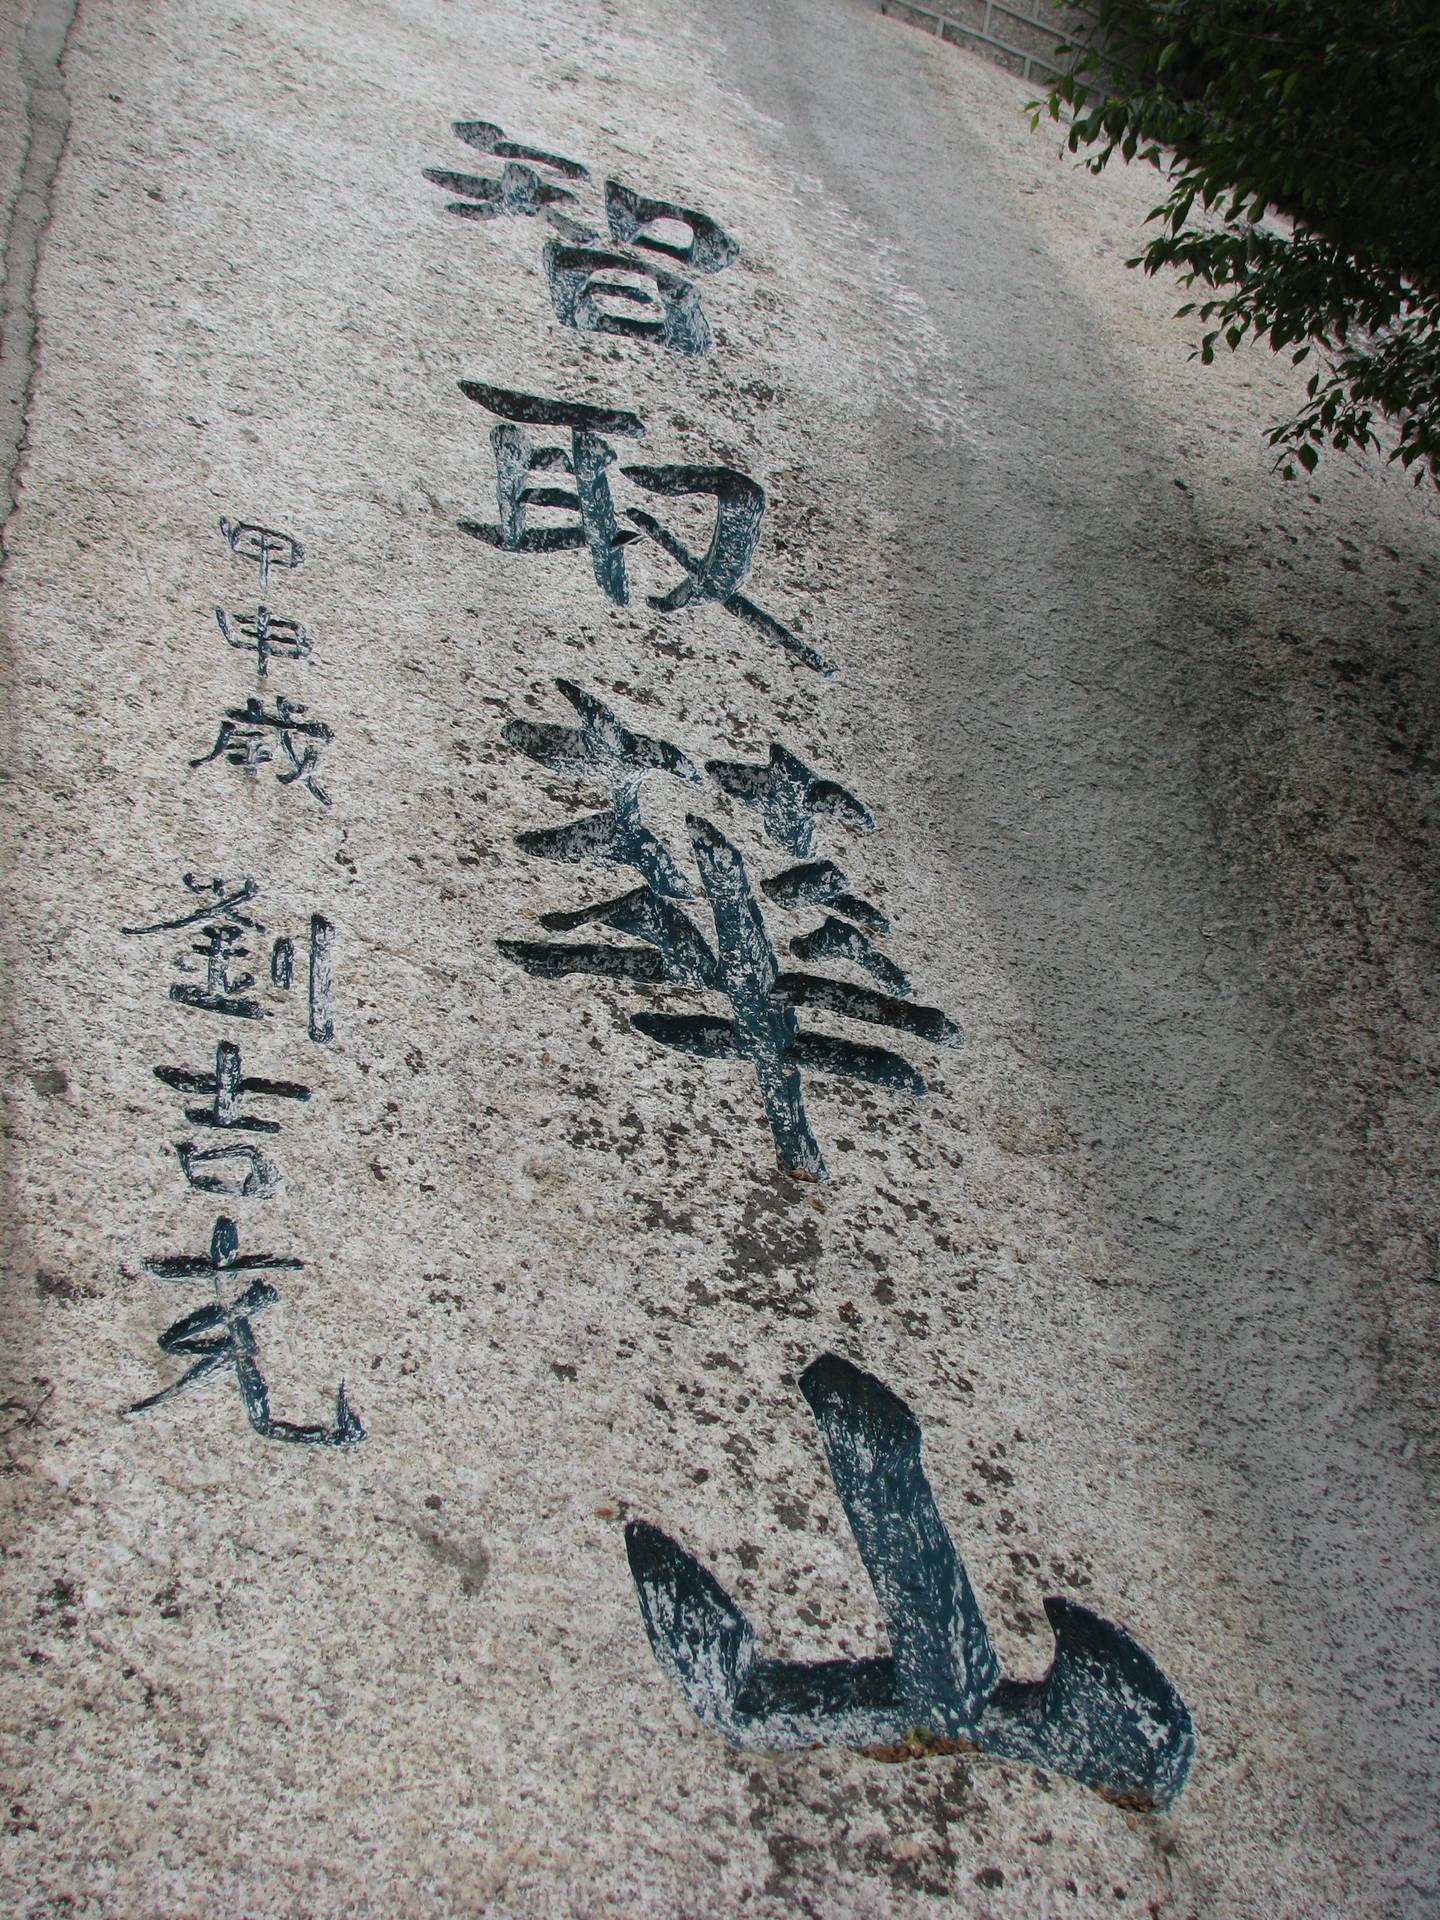 智取華山
甲申歲 劉吉克